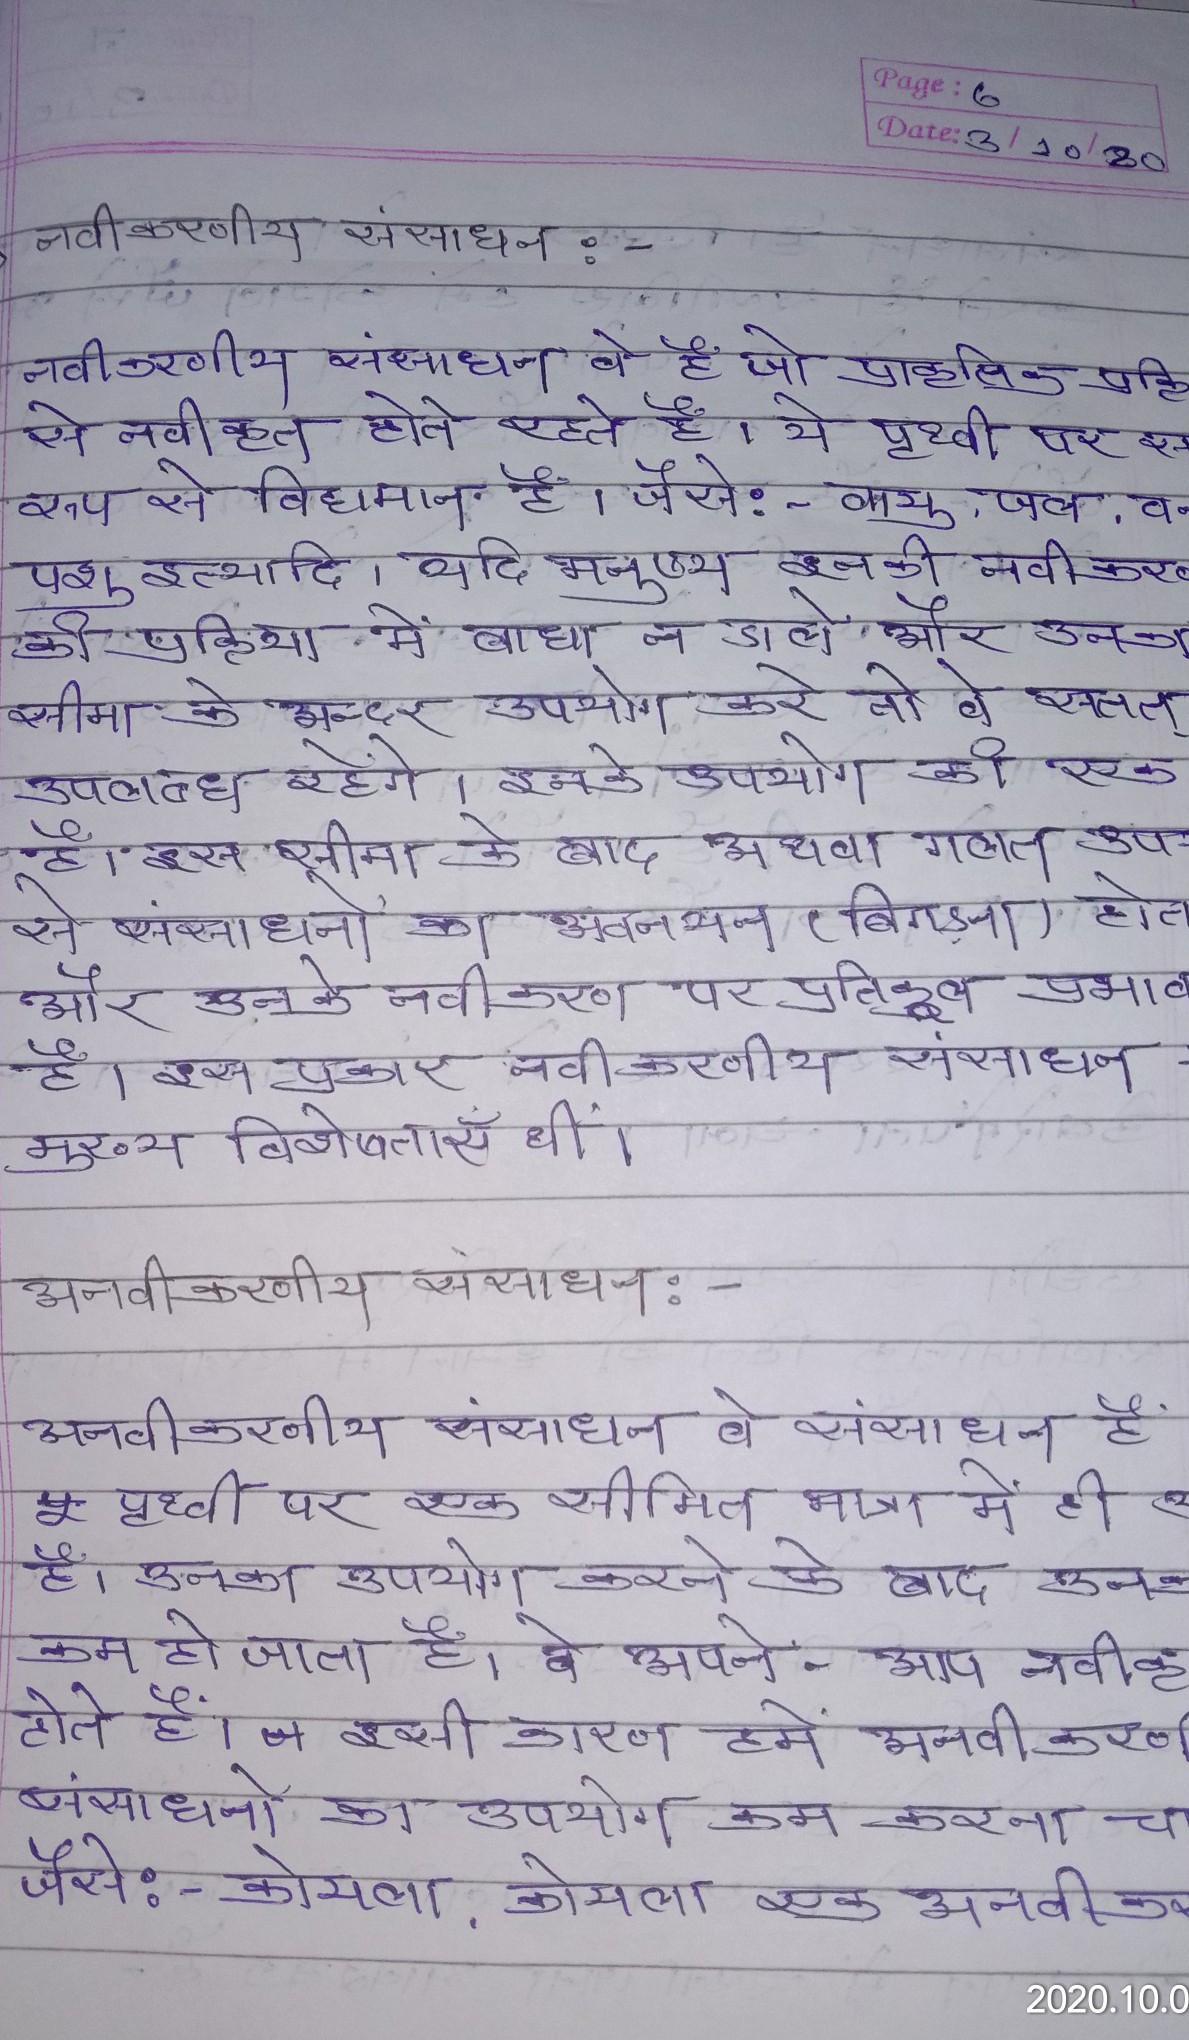 Page: 6
Date: 3/10/20
नवीकरणीय संसाधन :-
नवीकरणीय संसाधन वे हैं जो प्राकृतिक प्रक्रि
से नवीकृत होते रहते हैं। ये पृथ्वी पर
रूप से विद्यमान हैं। जैसे:- वायु, जल, वन
पशु इत्यादि। यदि मनुष्य इनकी नवीकरण
की प्रक्रिया में बाधा न डाले और उनका
सीमा के अन्दर उपयोग करे तो वे सतत्
उपलब्ध रहेंगे। इनके उपयोग की एक
है। इस सीमा के बाद अथवा गलत उप
से संसाधनों का अवनयन (बिगड़ना) होत
और उनके नवीकरण पर प्रतिकूल प्रभाव
है। इस प्रकार नवीकरणीय संसाधन
मुख्य विशेषताएँ थीं।
अनवीकरणीय संसाधन:-
अनवीकरनीय संसाधन वे संसाधन हैं
पृथ्वी पर एक सीमित मात्रा में ही
हैं। उनका उपयोग करने के बाद उनक
कम हो जाता है। वे अपने - आप नवीकृ
होते हैं। इसी कारण हमें अनवीकरणी
संसाधनों का उपयोग कम करना चा
जैसे:- कोयला, कोयला एक अनवीकर
2020.10.0